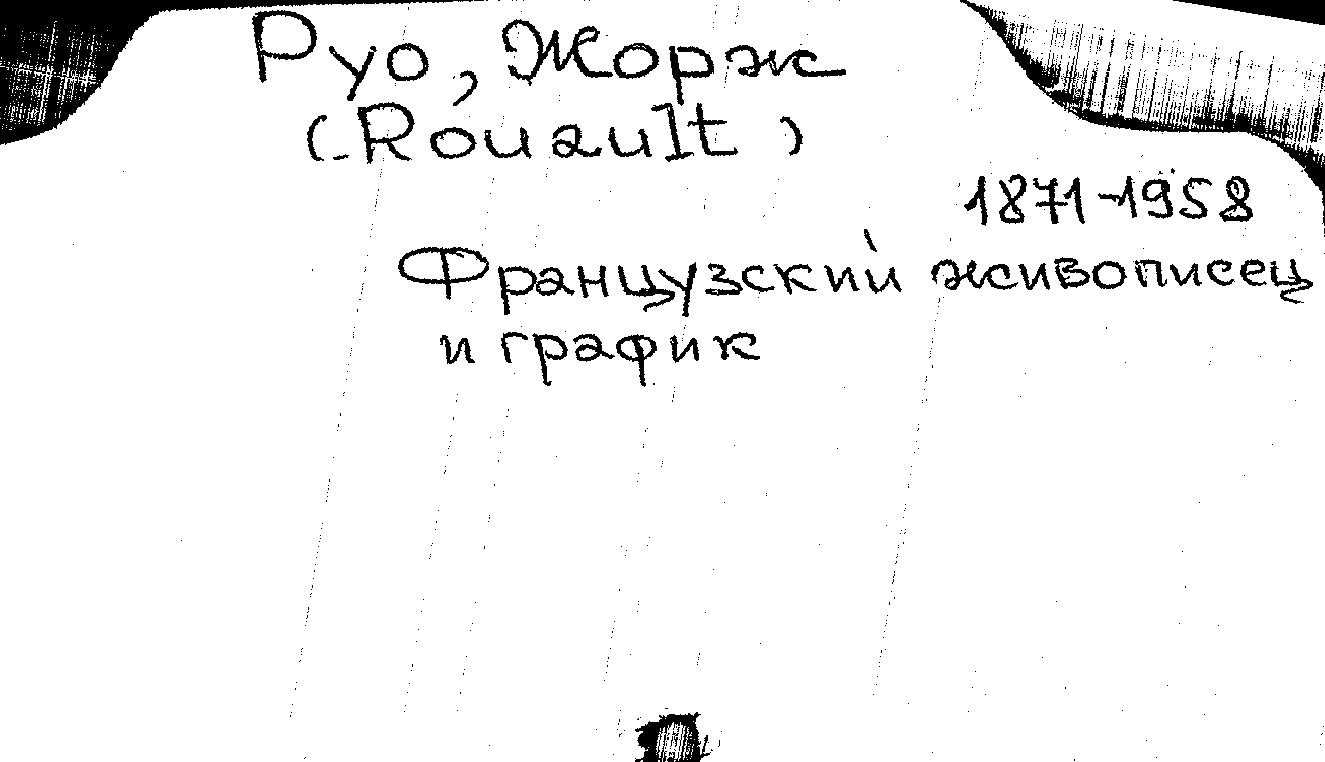 Руо, Жорж
(Rouault)
1871-1958
Французский живописец
и график